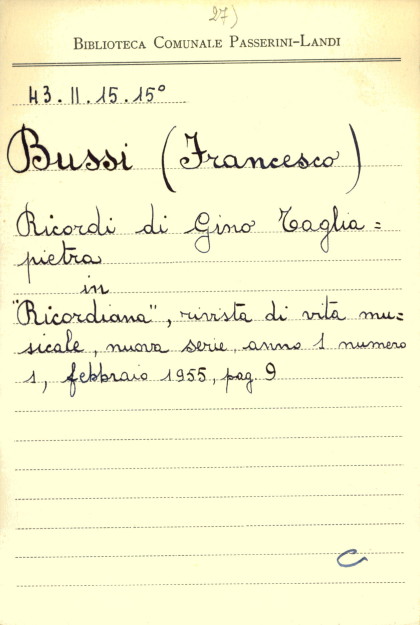 27)
BIBLIOTECA COMUNALE PASSERINI-LANDI
43.II.15.15°
Bussi (Francesco)
Ricordi di Gino Taglia=
pietra
in
"Ricordiana", rivista di vita mu=
sicale, nuova serie, anno 1 numero
1, febbraio 1955, pag. 9
C